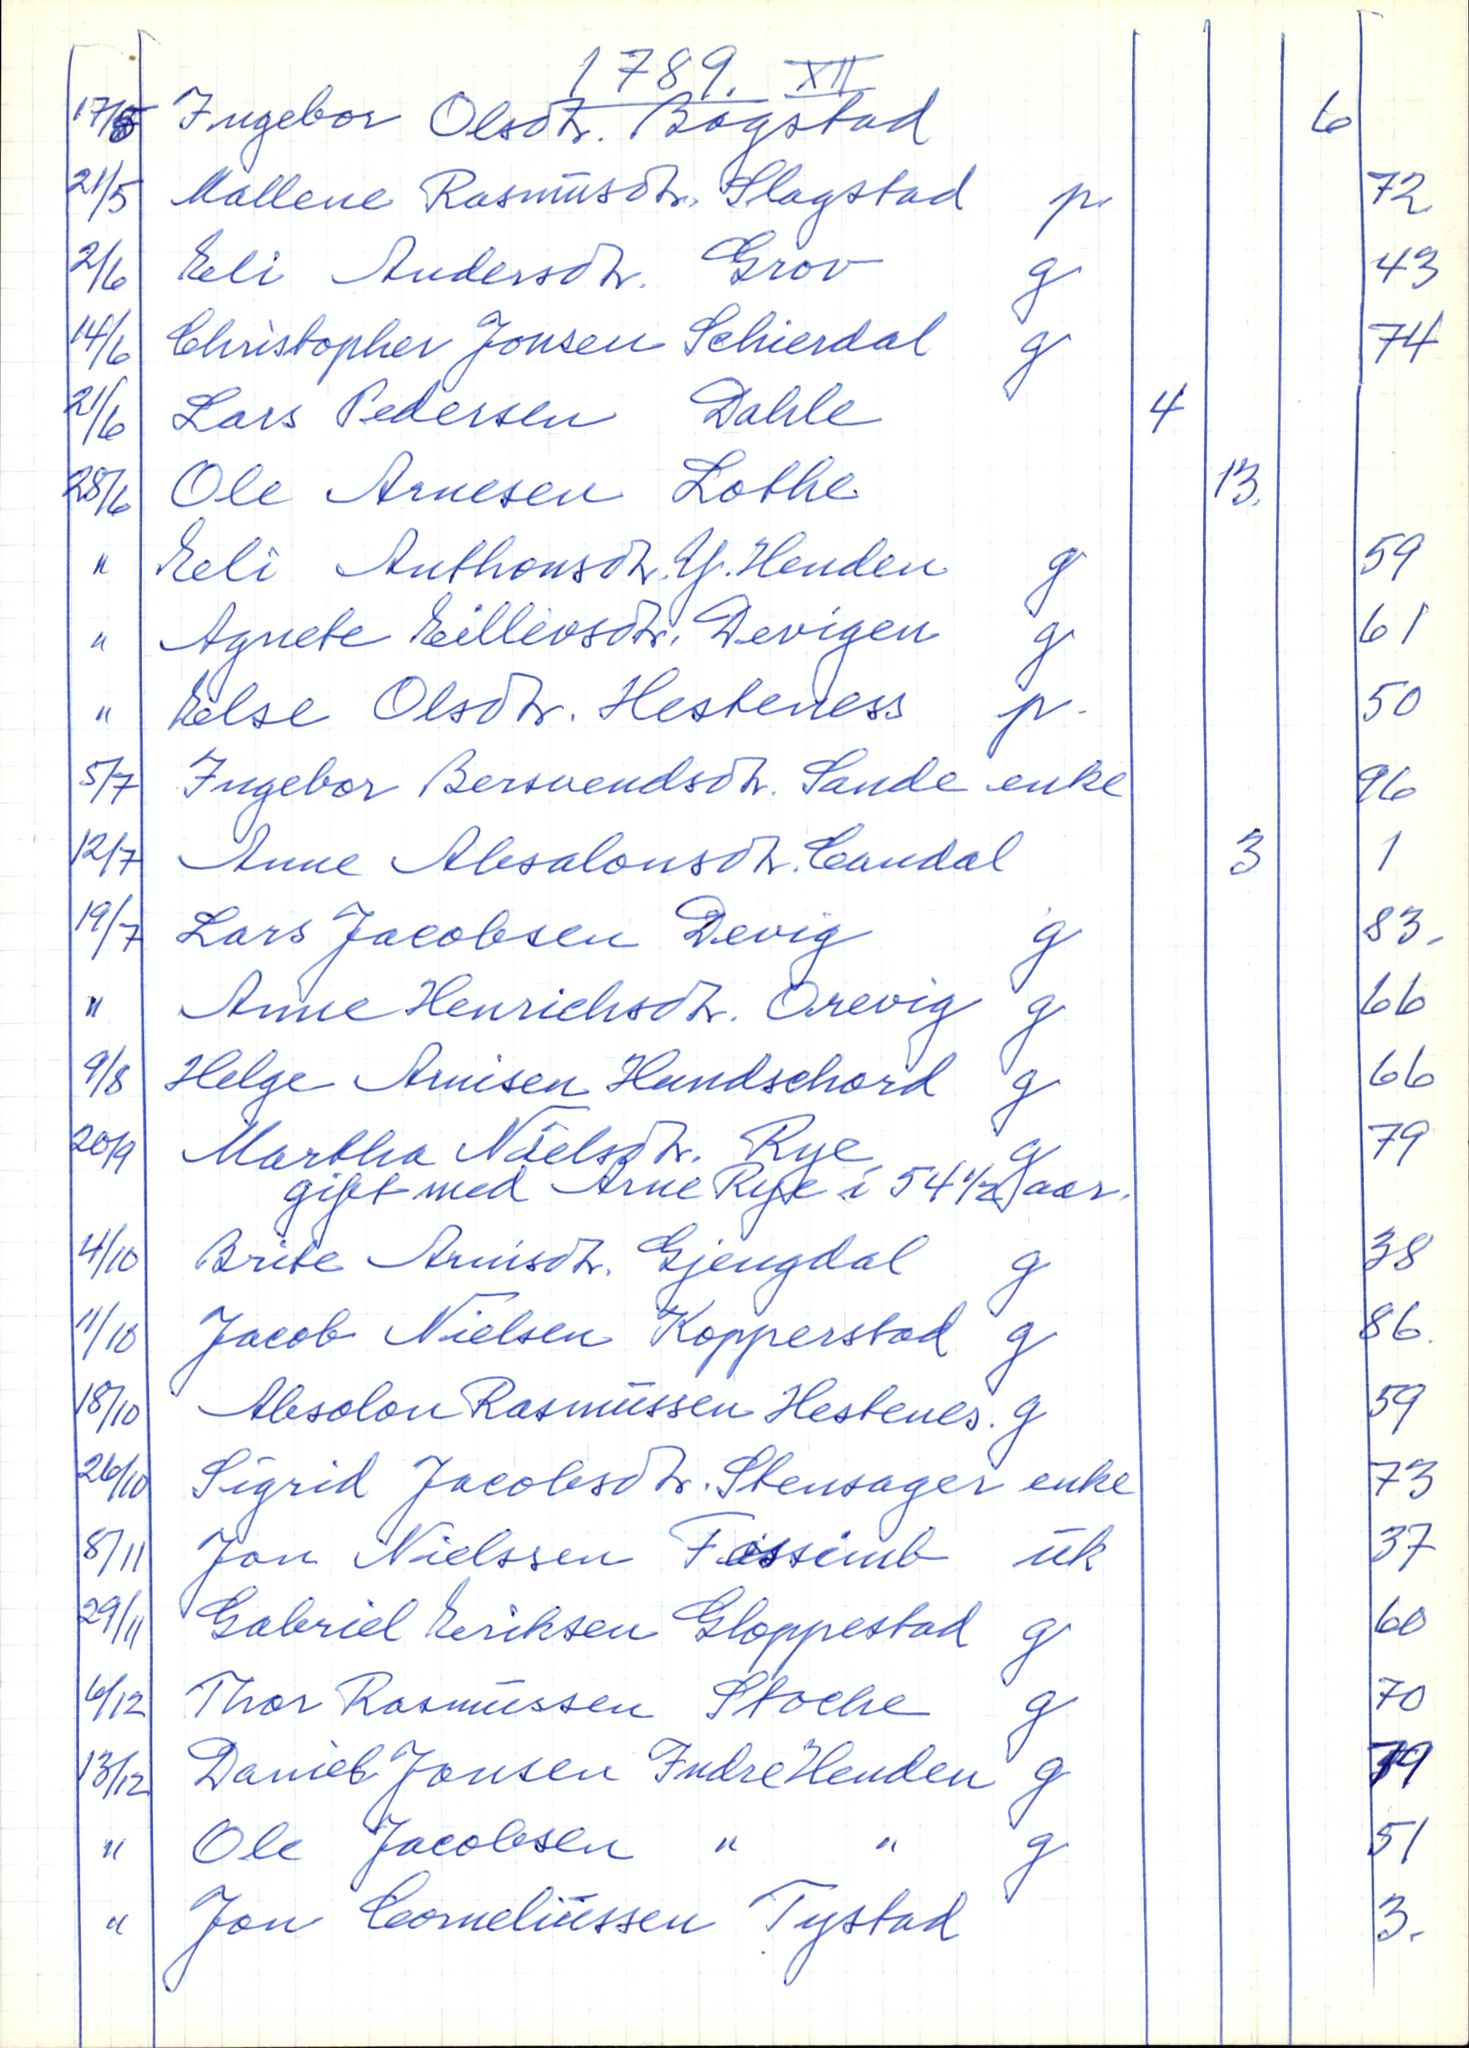 1789. XII
17/5 Ingebor Olsdtr. Bogstad 6
21/5 Mallene Rasmusdtr. Slagstad p. 72
2/6 Eli Andersdtr. Grov g 43
14/6 Christopher Jonsen Schierdal g 74
21/6 Lars Pedersen Dahle 4
28/6 Ole Arnesen Lothe 13.
" Eli Anthonsdtr. Y. Henden g 59
" Agnete Eillevsdtr. Devigen g 61
" Else Olsdtr. Hesteness p. 50
5/7 Ingebor Bersvendsdtr. Sande enke 96
12/7 Anne Absalonsdtr. Candal 3 1
19/7 Lars Jacobsen Devig g 83.
" Anne Henrichsdtr. Orevig g 66
9/8 Helge Arnisen Hundschord g 66
20/9 Martha Nielsdtr. Rye g 79
gift med Arne Rye i 54 1/2 aar.
4/10 Brite Arnisdtr. Gjengdal g 38
11/10 Jacob Nielsen Kopperstad g 86.
18/10 Absolon Rasmussen Hestenes. g 59
26/10 Sigrid Jacobsdtr. Stensager enke 73
8/11 Jon Nielssen uk 37
29/11 Gabriel Eriksen Gloppestad g 60
6/12 Thor Rasmussen Stoche g 70
13/12 Daniel Jonsen Indre Henden g
" Ole Jacobsen " " g 51
" Jon Corneliussen Tystad 3.